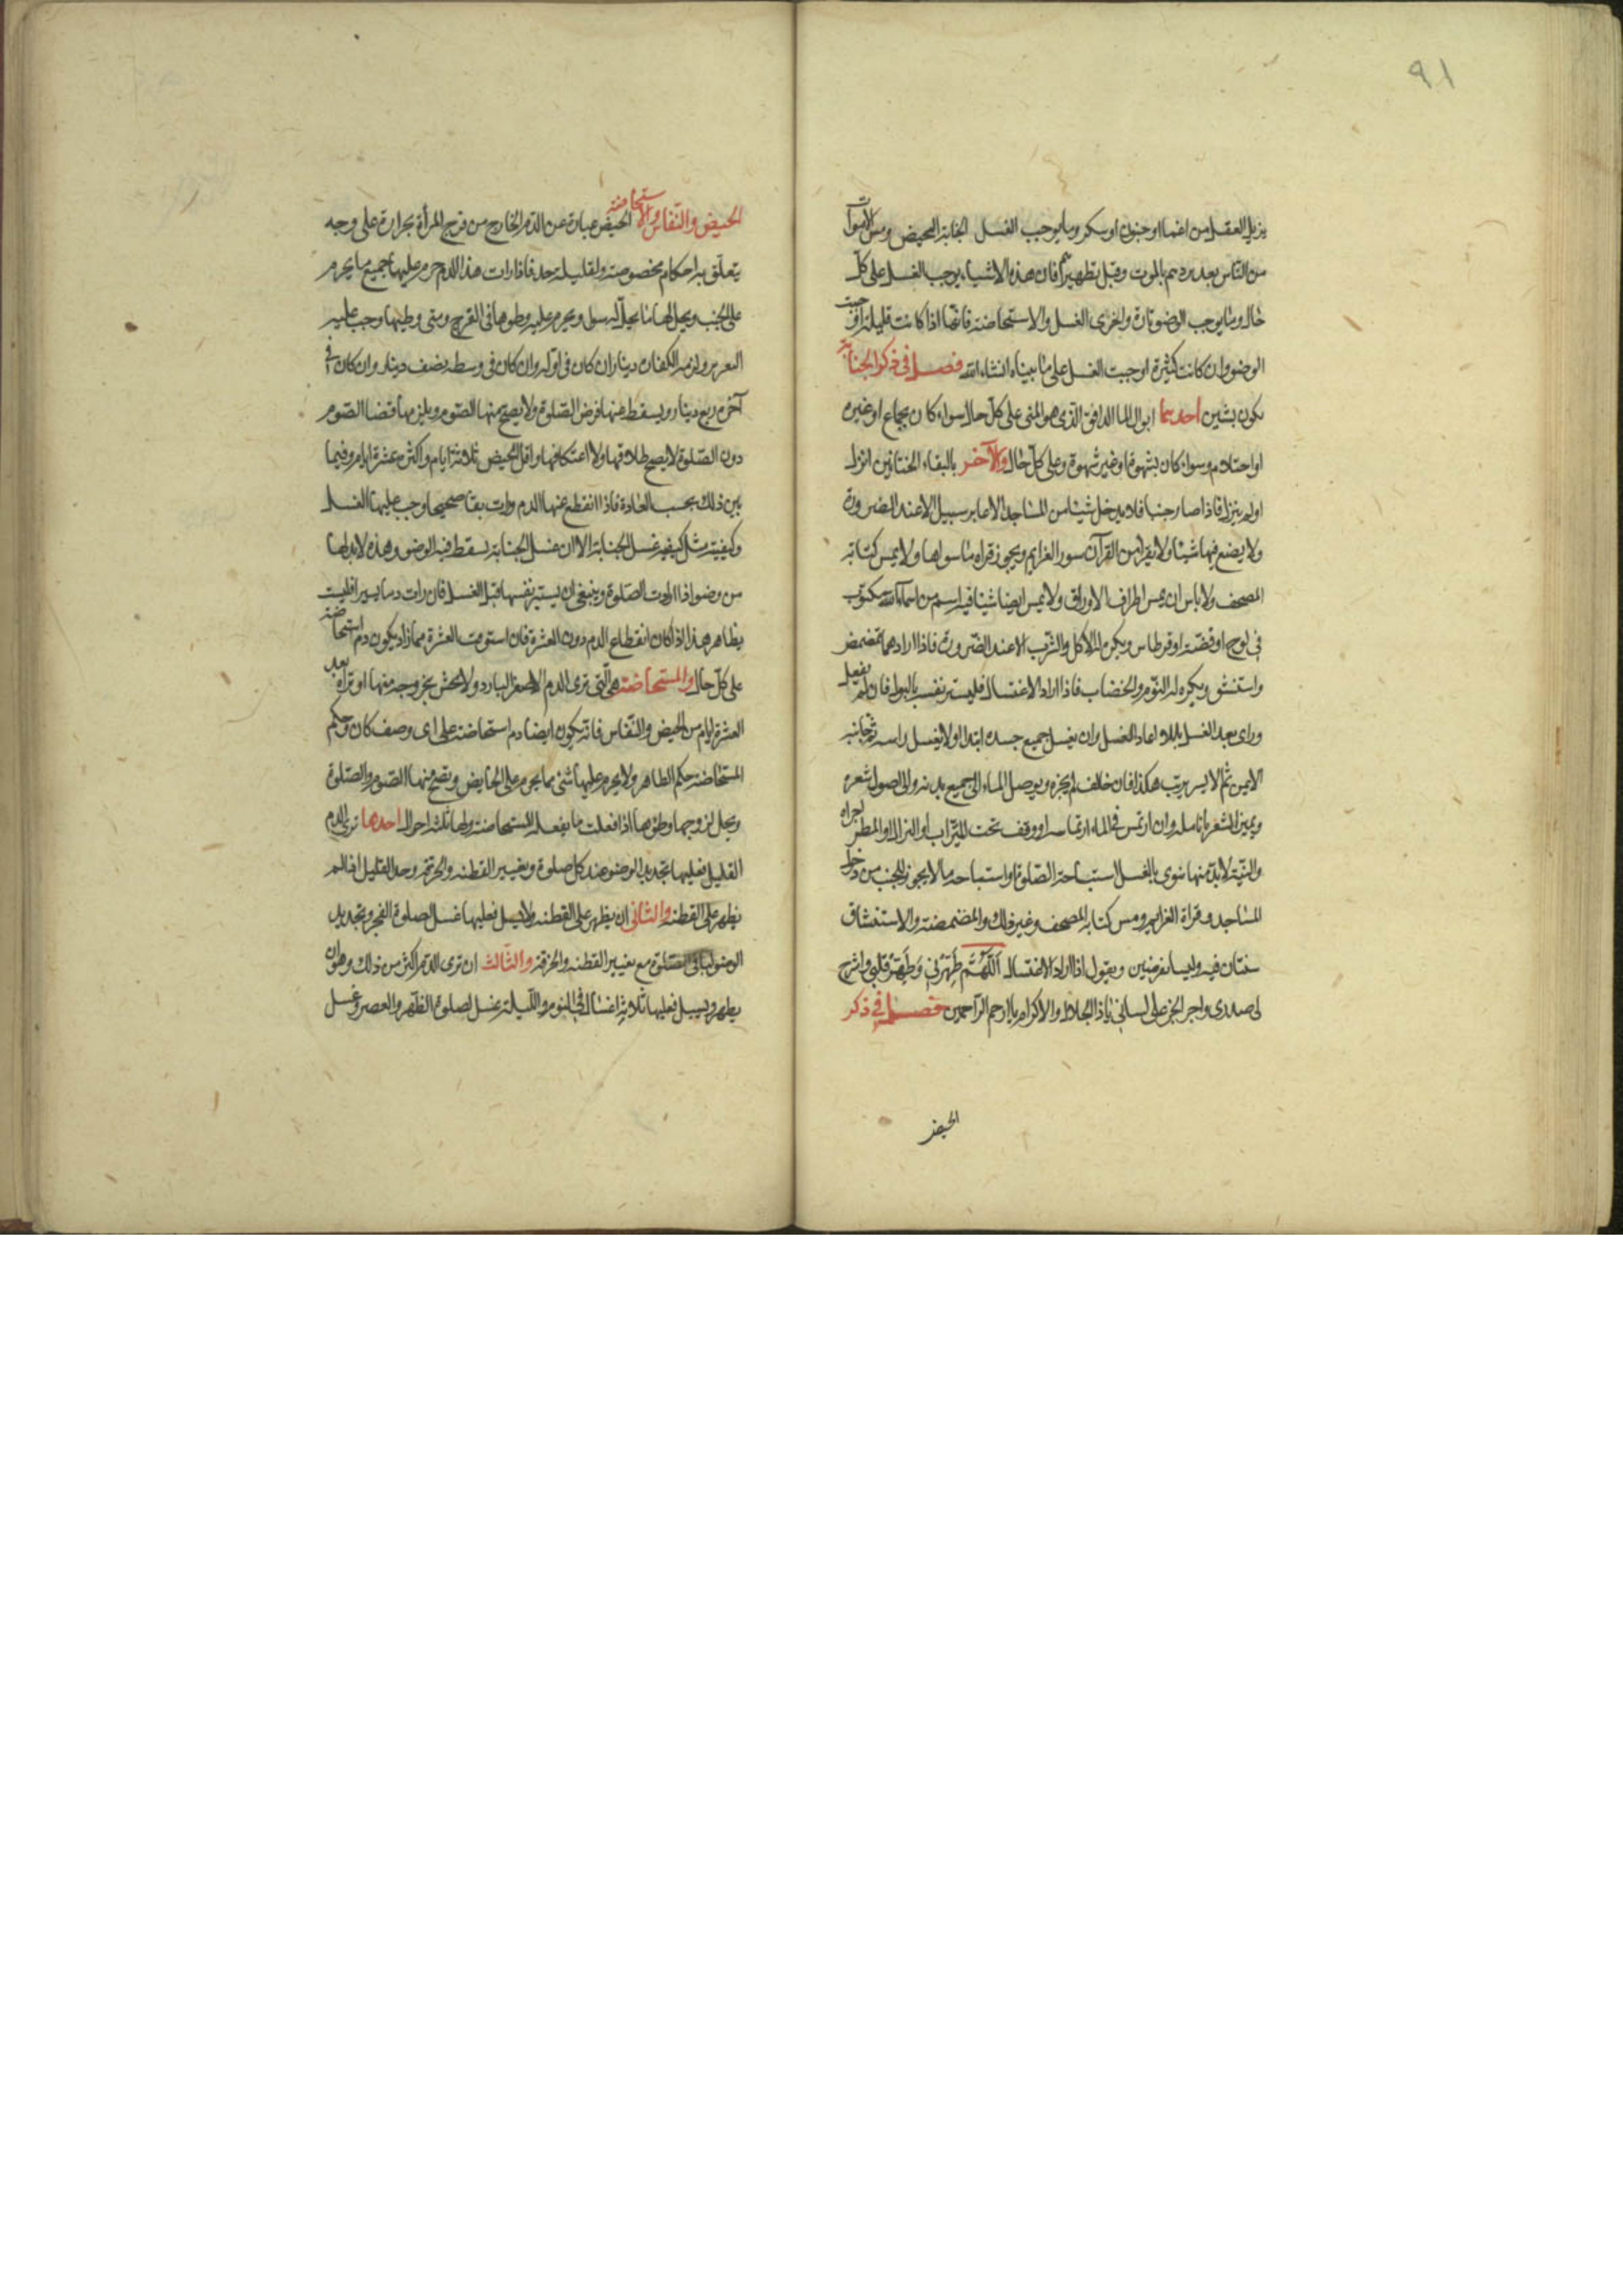 ٩١
يزيل العقل من اغما او جنون او سكر وما يوجب الغسل الجنابة الحيض ومس الاموات
من الناس بعد بردهم بالموت وقبل تطهيرهم فان هذه الاشياء يوجب الغسل على كل
حال وما يوجب الوضو تارة واخرى الغسل والاستحاضة فانها اذا كانت قليلة اوجبت
الوضو وان كانت كثيرة اوجبت الغسل على ما بيناه انشاء الله فصل في ذكر الجنابة
يكون بشين احدهما انزال الما الدافق الذى هو المنى على كل حال سواء كان بجماع او غيره
او احتلام وسواء كان بشهوة او غير شهوة وعلى كل حال والآخر بالتقاء الختانين انزل
او لم ينزل فاذا صار جنبا فلا يدخل شيئا من المساجد الا عابر سبيل الا عند الضرورة
ولا يضع فيها شيئا ولا يقرا من القرآن سور العزايم ويجوز قراه ما سواها ولا يمس كتابة
المصحف ولا باس ان يمس اطراف الاوراق ولا يمس ايضا شيئا فيه اسم من اسماء الله مكتوب
فى لوح او فضة او قرطاس ويكره له الاكل والشرب الا عند الضرورة فاذا ارادهما تمضمض
واستنشق ويكره له النوم والخضاب فاذا اراد الاغتسال فليستبر نفسه بالبول فان لم يفعل
وراى بعد الغسل بللا اعاد الغسل وان يغسل جميع جسده ابتدا اولا يغسل راسه ثم جانبه
الايمن ثم الايسر يرتب هكذا فان خالف لم يجزه ويوصل الماء الى جميع بدنه والى اصول شعره
ويميز الشعر بانامله وان ارتمس فى الماء ارتماسه او وقف تحت الميزاب او النزال او المطر اجزاه
والنية لابد منها ينوى بالغسل استباحة الصلوة او استباحة ما لا يجوز للجنب من دخول
المساجد وقراة العزايم ومس كتابة المصحف وغير ذلك والمضمضة والاستنشاق
سنتان فيه وليسا بفرضين ويقول اذا اراد الاغتسال اللهم طهرنى وطهر قلبى واشرح
لى صدرى واجر الخير على لسانى يا ذا الجلال والاكرام يا ارحم الراحمين فصل في ذكر
الحيض
الحيض والنفاس والاستحاضة الحيض عبارة عن الدم الخارج من فرج المرأة بحرارة على وجه
يتعلق به احكام مخصوصة ولقليله حد فاذا رات هذا الدم حرم عليها جميع ما يحرم
على الجنب ويحل لها ما يحل له سوا ويحرم عليه وطوها فى الفرج ومتى وطيها وجب عليه
التعزير ولزمه الكفارة دينار ان كان فى اوله وان كان فى وسطه نصف دينار وان كان فى
آخره ربع دينار ويسقط عنها فرض الصلوة ولا يصح منها الصوم ويلزمها قضا الصوم
دون الصلوة لا يصح طلاقها ولا اعتكافها واقل الحيض ثلاثة ايام واكثره عشرة ايام وفيما
بين ذلك بحسب العادة فاذا انقطع عنها الدم ورات نقا صحيحا وجب عليها الغسل
وكيفيته مثل كيفية غسل الجنابة الا ان غسل الجنابة يسقط فيه الوضو وهذه لابد لها
من وضو اذا ارادت الصلوة وينبغى ان يستبر نفسها قبل الغسل فان رات دما يسيرا فليست
بظاهر هذا اذا كان انقطاع الدم دون العشرة فان استوفت العشرة مما زاد يكون دم استحاضة
على كل حال والمستحاضة هى التى ترى الدم الاصفر البارد ولا تحس بخروجه منها او تراه بعد
العشرة ايام من الحيض والنفاس فانه يكون ايضا دم استحاضة على اى وصف كان وحكم
المستحاضة حكم الطاهر ولا يحرم عليها شئ مما يحرم على الحايض ويصح منها الصوم والصلوة
ويحل لزوجها وطوها اذا فعلت ما يفعله المستحاضة ولها ثلثة احوال احدها ترى الدم
القليل فعليها تجديد الوضو عند كل صلوة وتغيير القطنة والخرقة وحد القليل اذا لم
يظهر على القطنة والثانى ان يظهر على القطنة ولا يسل فعليها غسل لصلوة الفجر وتجديد
الوضو لباقى الصلوة مع تغيير القطنة والخرقة والثالث ان ترى الدم اكثر من ذلك وهو ان
يظهر ويسيل فعليها ثلاثة اغسال فى اليوم والليلة غسل لصلوة الظهر والعصر وغسل